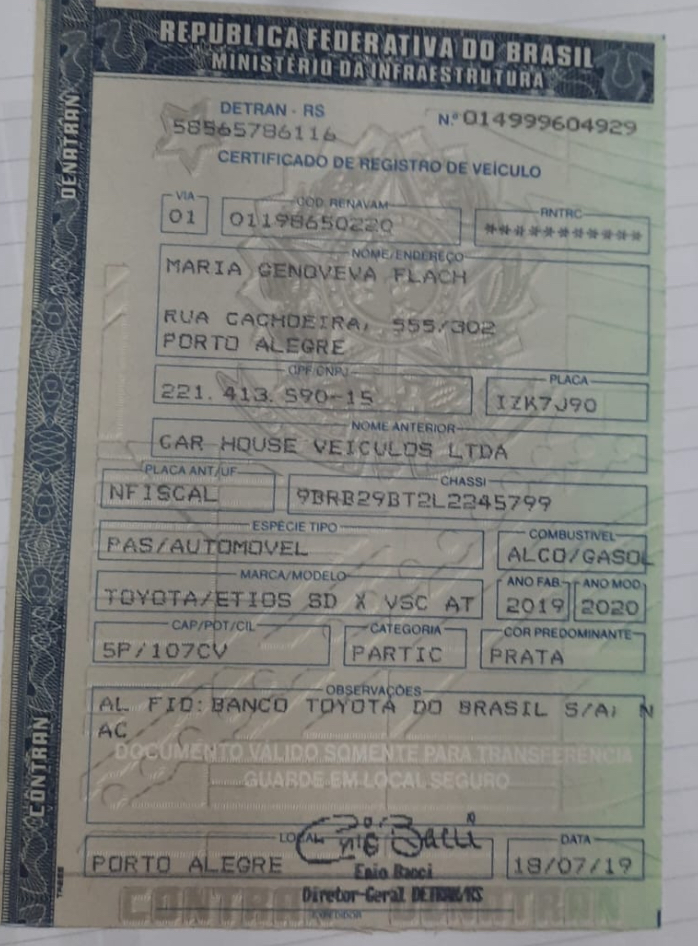 REPÚBLICA FEDERATIVA DO BRASIL
MINISTÉRIO DA INFRAESTRUTURA
DENATRAN
CONTRAN
DETRAN - RS
58565786116
N.º 014999604929
CERTIFICADO DE REGISTRO DE VEÍCULO
VIA
01
COD. RENAVAM
01198650220
RNTRC
***********
NOME/ENDEREÇO
MARIA GENOVEVA FLACH
RUA CACHOEIRA, 555/302
PORTO ALEGRE
CPF/CNPJ
221.413.590-15
PLACA
IZK7J90
NOME ANTERIOR
CAR HOUSE VEICULOS LTDA
PLACA ANT/UF
NFISCAL
CHASSI
9BRB29BT2L2245799
ESPÉCIE TIPO
PAS/AUTOMOVEL
COMBUSTÍVEL
ALCO/GASOL
MARCA/MODELO
TOYOTA/ETIOS SD X VSC AT
ANO FAB.
2019
ANO MOD.
2020
CAP/POT/CIL
5P/107CV
CATEGORIA
PARTIC
COR PREDOMINANTE
PRATA
OBSERVAÇÕES
AL. FID: BANCO TOYOTA DO BRASIL S/A; N
AC
DOCUMENTO VALIDO SOMENTE PARA TRANSFERÊNCIA
GUARDE EM LOCAL SEGURO
LOCAL
PORTO ALEGRE
Enio Bacci
Diretor-Geral DETRAN/RS
EXPEDIDOR
DATA
18/07/19
CONTRAN DENATRAN